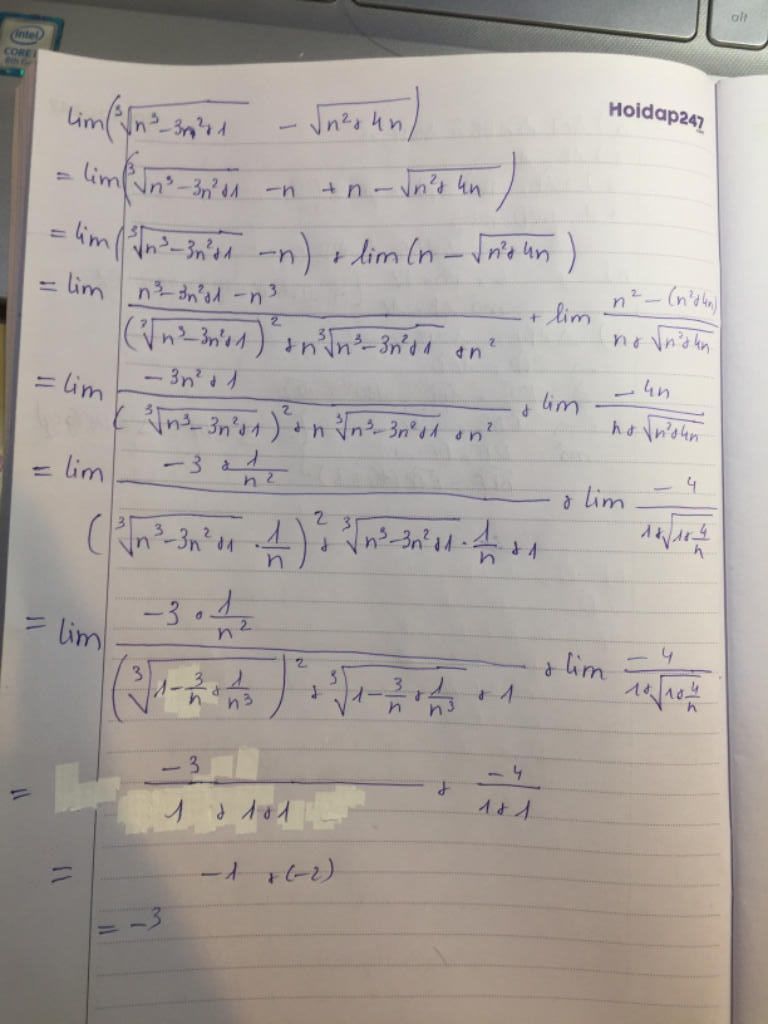 intel
CORE
alt
Hoidap247
lim(∛(n³ − 3n² + 1) − √(n² + 4n))
= lim(∛(n³ − 3n² + 1) − n + n − √(n² + 4n))
= lim(∛(n³ − 3n² + 1) − n) + lim(n − √(n² + 4n))
= lim (n³ − 3n² + 1 − n³)/((∛(n³ − 3n² + 1))² + n∛(n³ − 3n² + 1) + n²) + lim (n² − (n² + 4n))/(n + √(n² + 4n))
= lim (−3n² + 1)/((∛(n³ − 3n² + 1))² + n∛(n³ − 3n² + 1) + n²) + lim (−4n)/(n + √(n² + 4n))
= lim (−3 + 1/n²)/((∛(n³ − 3n² + 1) · 1/n)² + ∛(n³ − 3n² + 1) · 1/n + 1) + lim (−4)/(1 + √(1 + 4/n))
= lim (−3 + 1/n²)/((∛(1 − 3/n + 1/n³))² + ∛(1 − 3/n + 1/n³) + 1) + lim (−4)/(1 + √(1 + 4/n))
= (−3)/(1 + 1 + 1) + (−4)/(1 + 1)
= −1 + (−2)
= −3